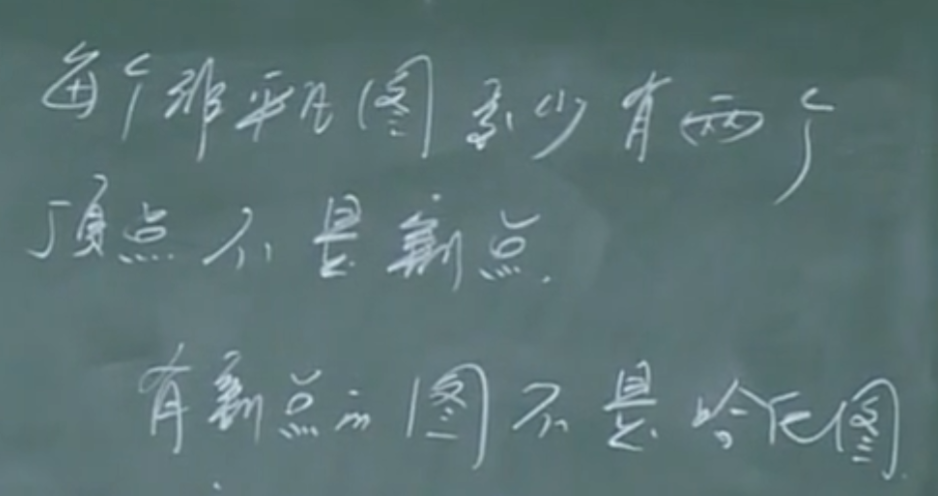 每个非平凡图至少有两个
顶点不是割点.
有割点的图不是哈氏图.